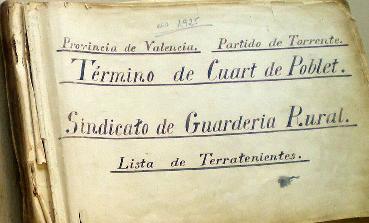 año 1925
Provincia de Valencia. Partido de Torrente.
Término de Cuart de Poblet.
Sindicato de Guarderia Rural.
Lista de Terratenientes.